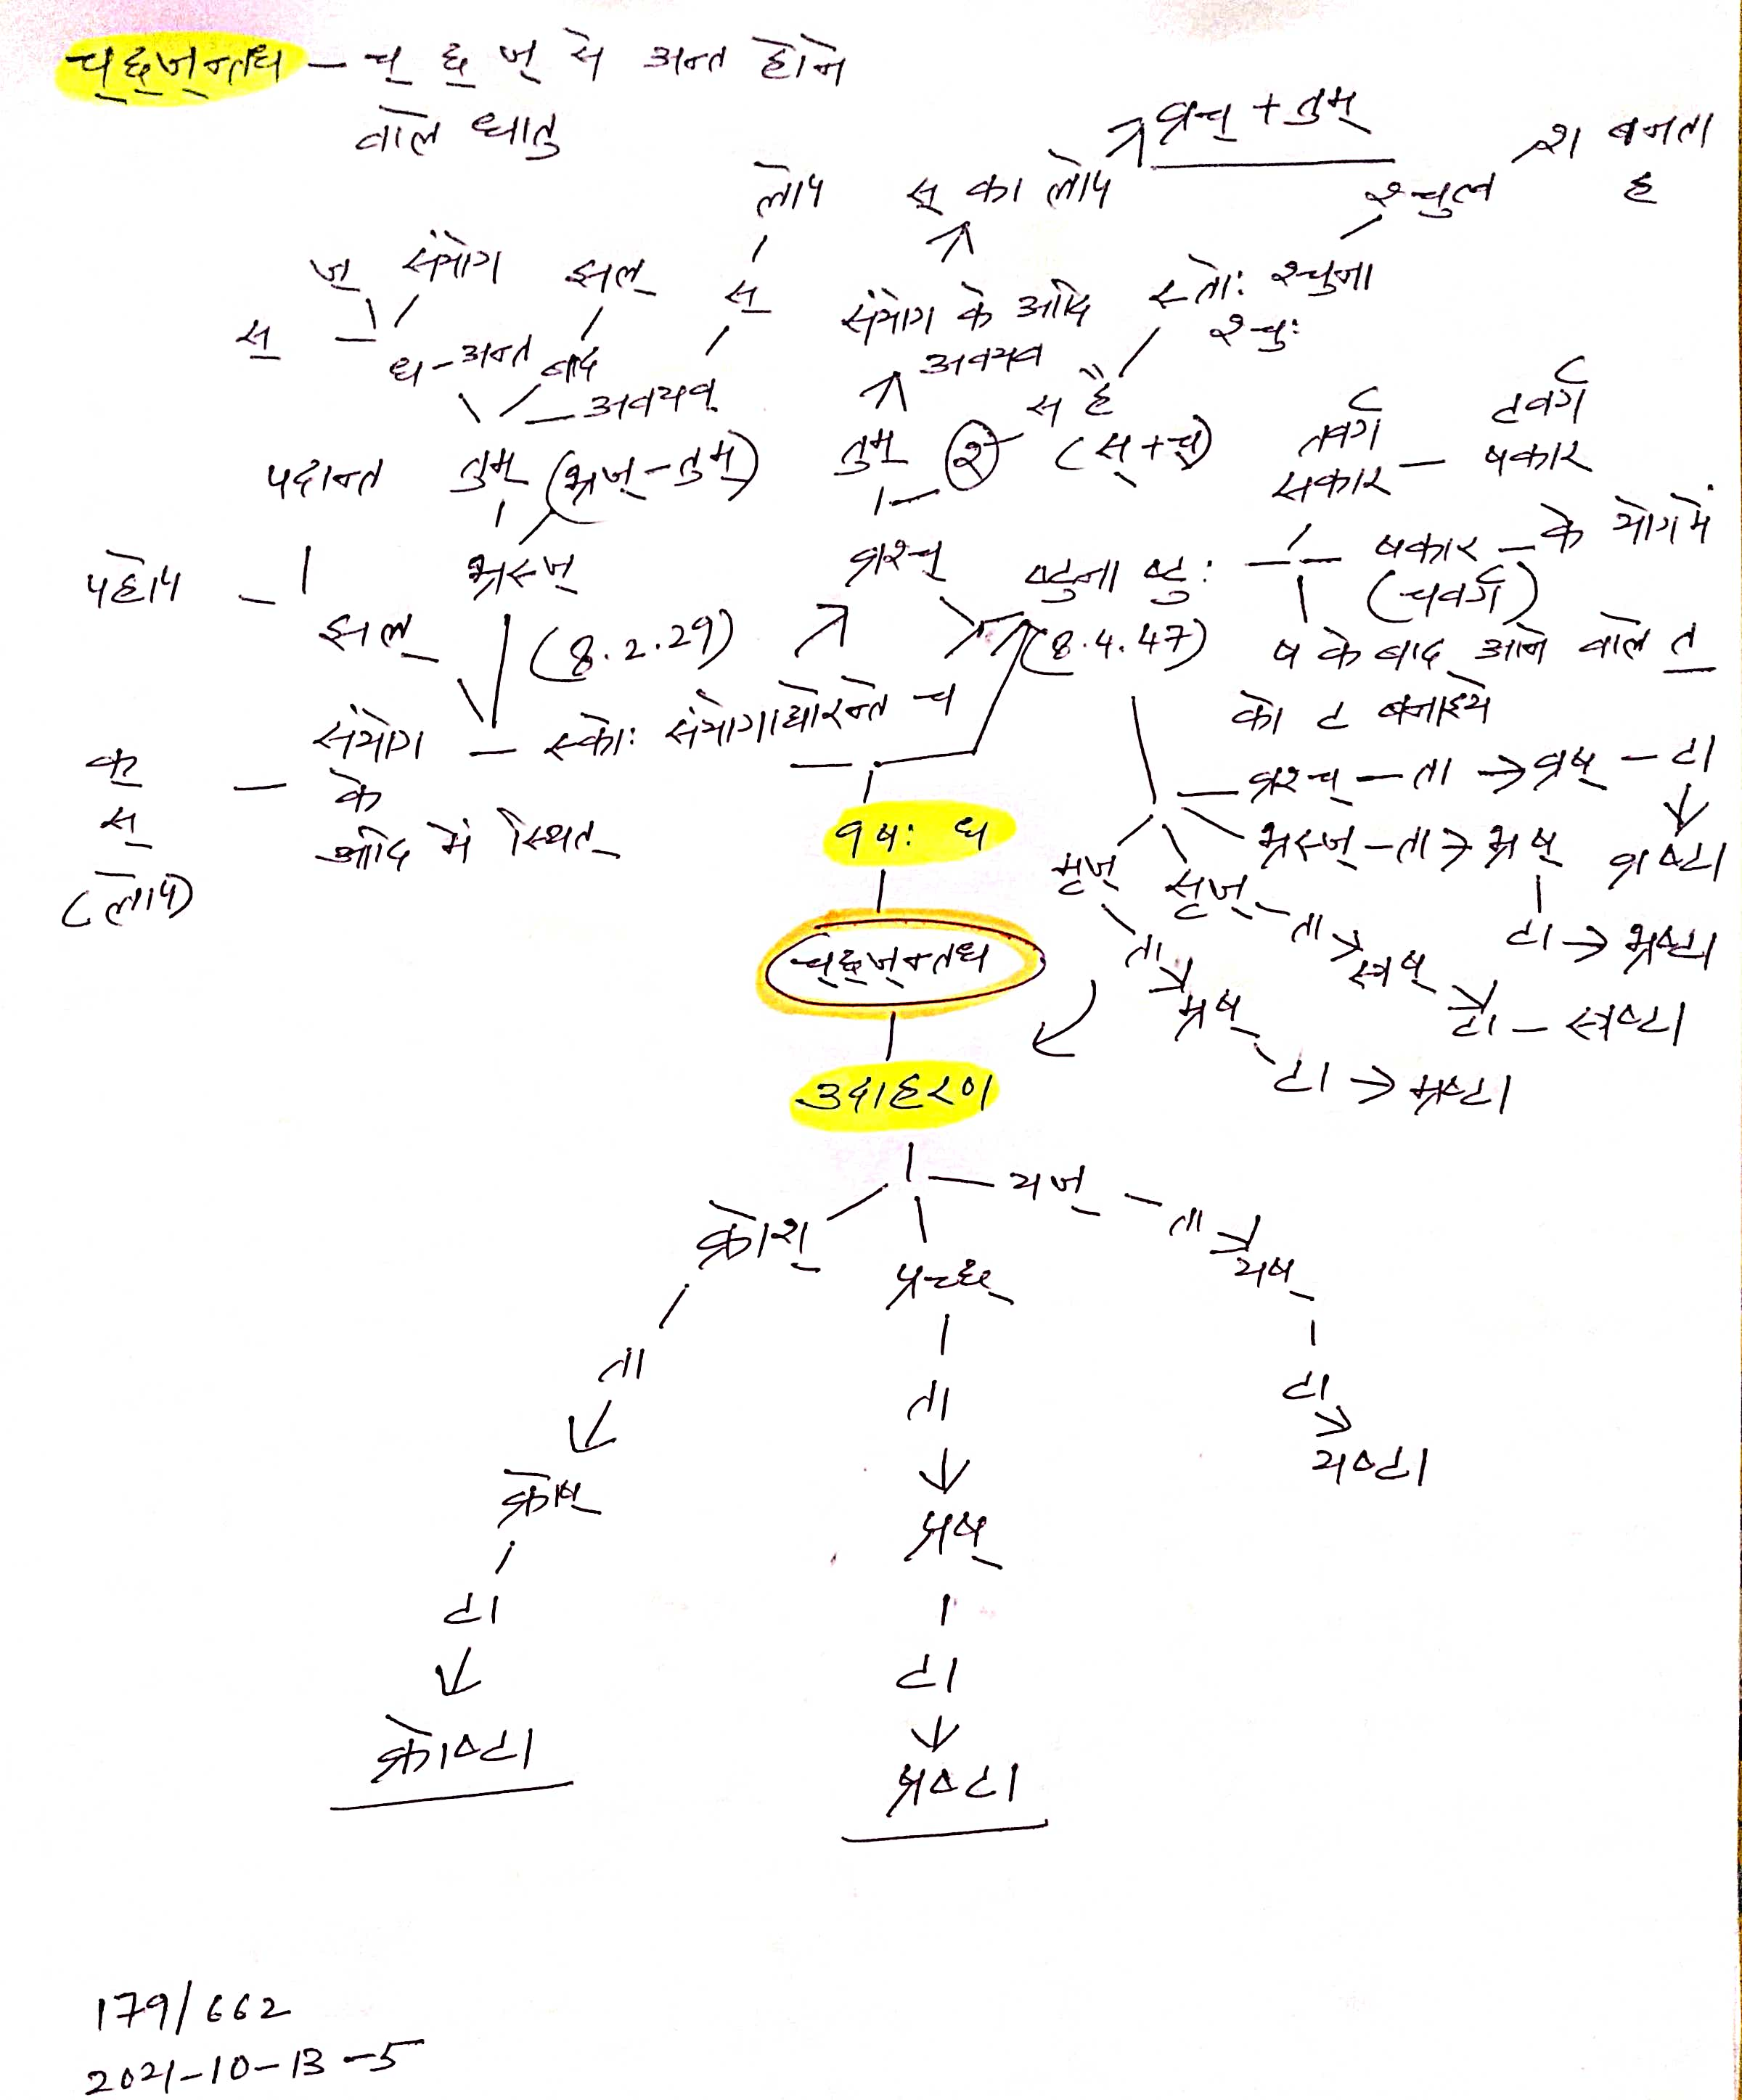 च्छ्ज्न्तध – च् छ् ज् से अन्त होने
वाले धातु
व्रच् + तुम्
लोप
स् का लोप
श्चुत्व
श बनता
है
ज् संयोग झल्
स्
स्
संयोग के आदि
अवयव
स्तोः श्चुना
श्चुः
ध-अन्त बाद
अवयव
स है
पदान्त तुम् (भ्रज्-तुम्)
तुम् श् (स्+च्)
तवर्ग
सकार –
टवर्ग
षकार
पहले
झल्
भ्रस्ज्
व्रश्च्
ष्टुना ष्टुः
षकार – के योग में
(चवर्ग)
(8.2.29)
(8.4.47)
ष के बाद आने वाले त
को ट बनाइये
संयोग – स्कोः संयोगाद्योरन्ते च
क्
स्
(लोप)
के
आदि में स्थित
व्रश्च् – ता → व्रष् – टा
व्रष्टा
भ्रस्ज् – ता → भ्रष्
टा → भ्रष्टा
१ षः ध
मृज्
ता
म्रष्
टा → म्रष्टा
सृज् – ता
स्रष्
टा – स्रष्टा
च्छ्ज्न्तध
उदाहरण
क्रोश्
ता
क्रोष्
टा
क्रोष्टा
प्रच्छ्
ता
प्रष्
टा
प्रष्टा
यज् – ता
यष्
टा
यष्टा
179/662
2021-10-13-5